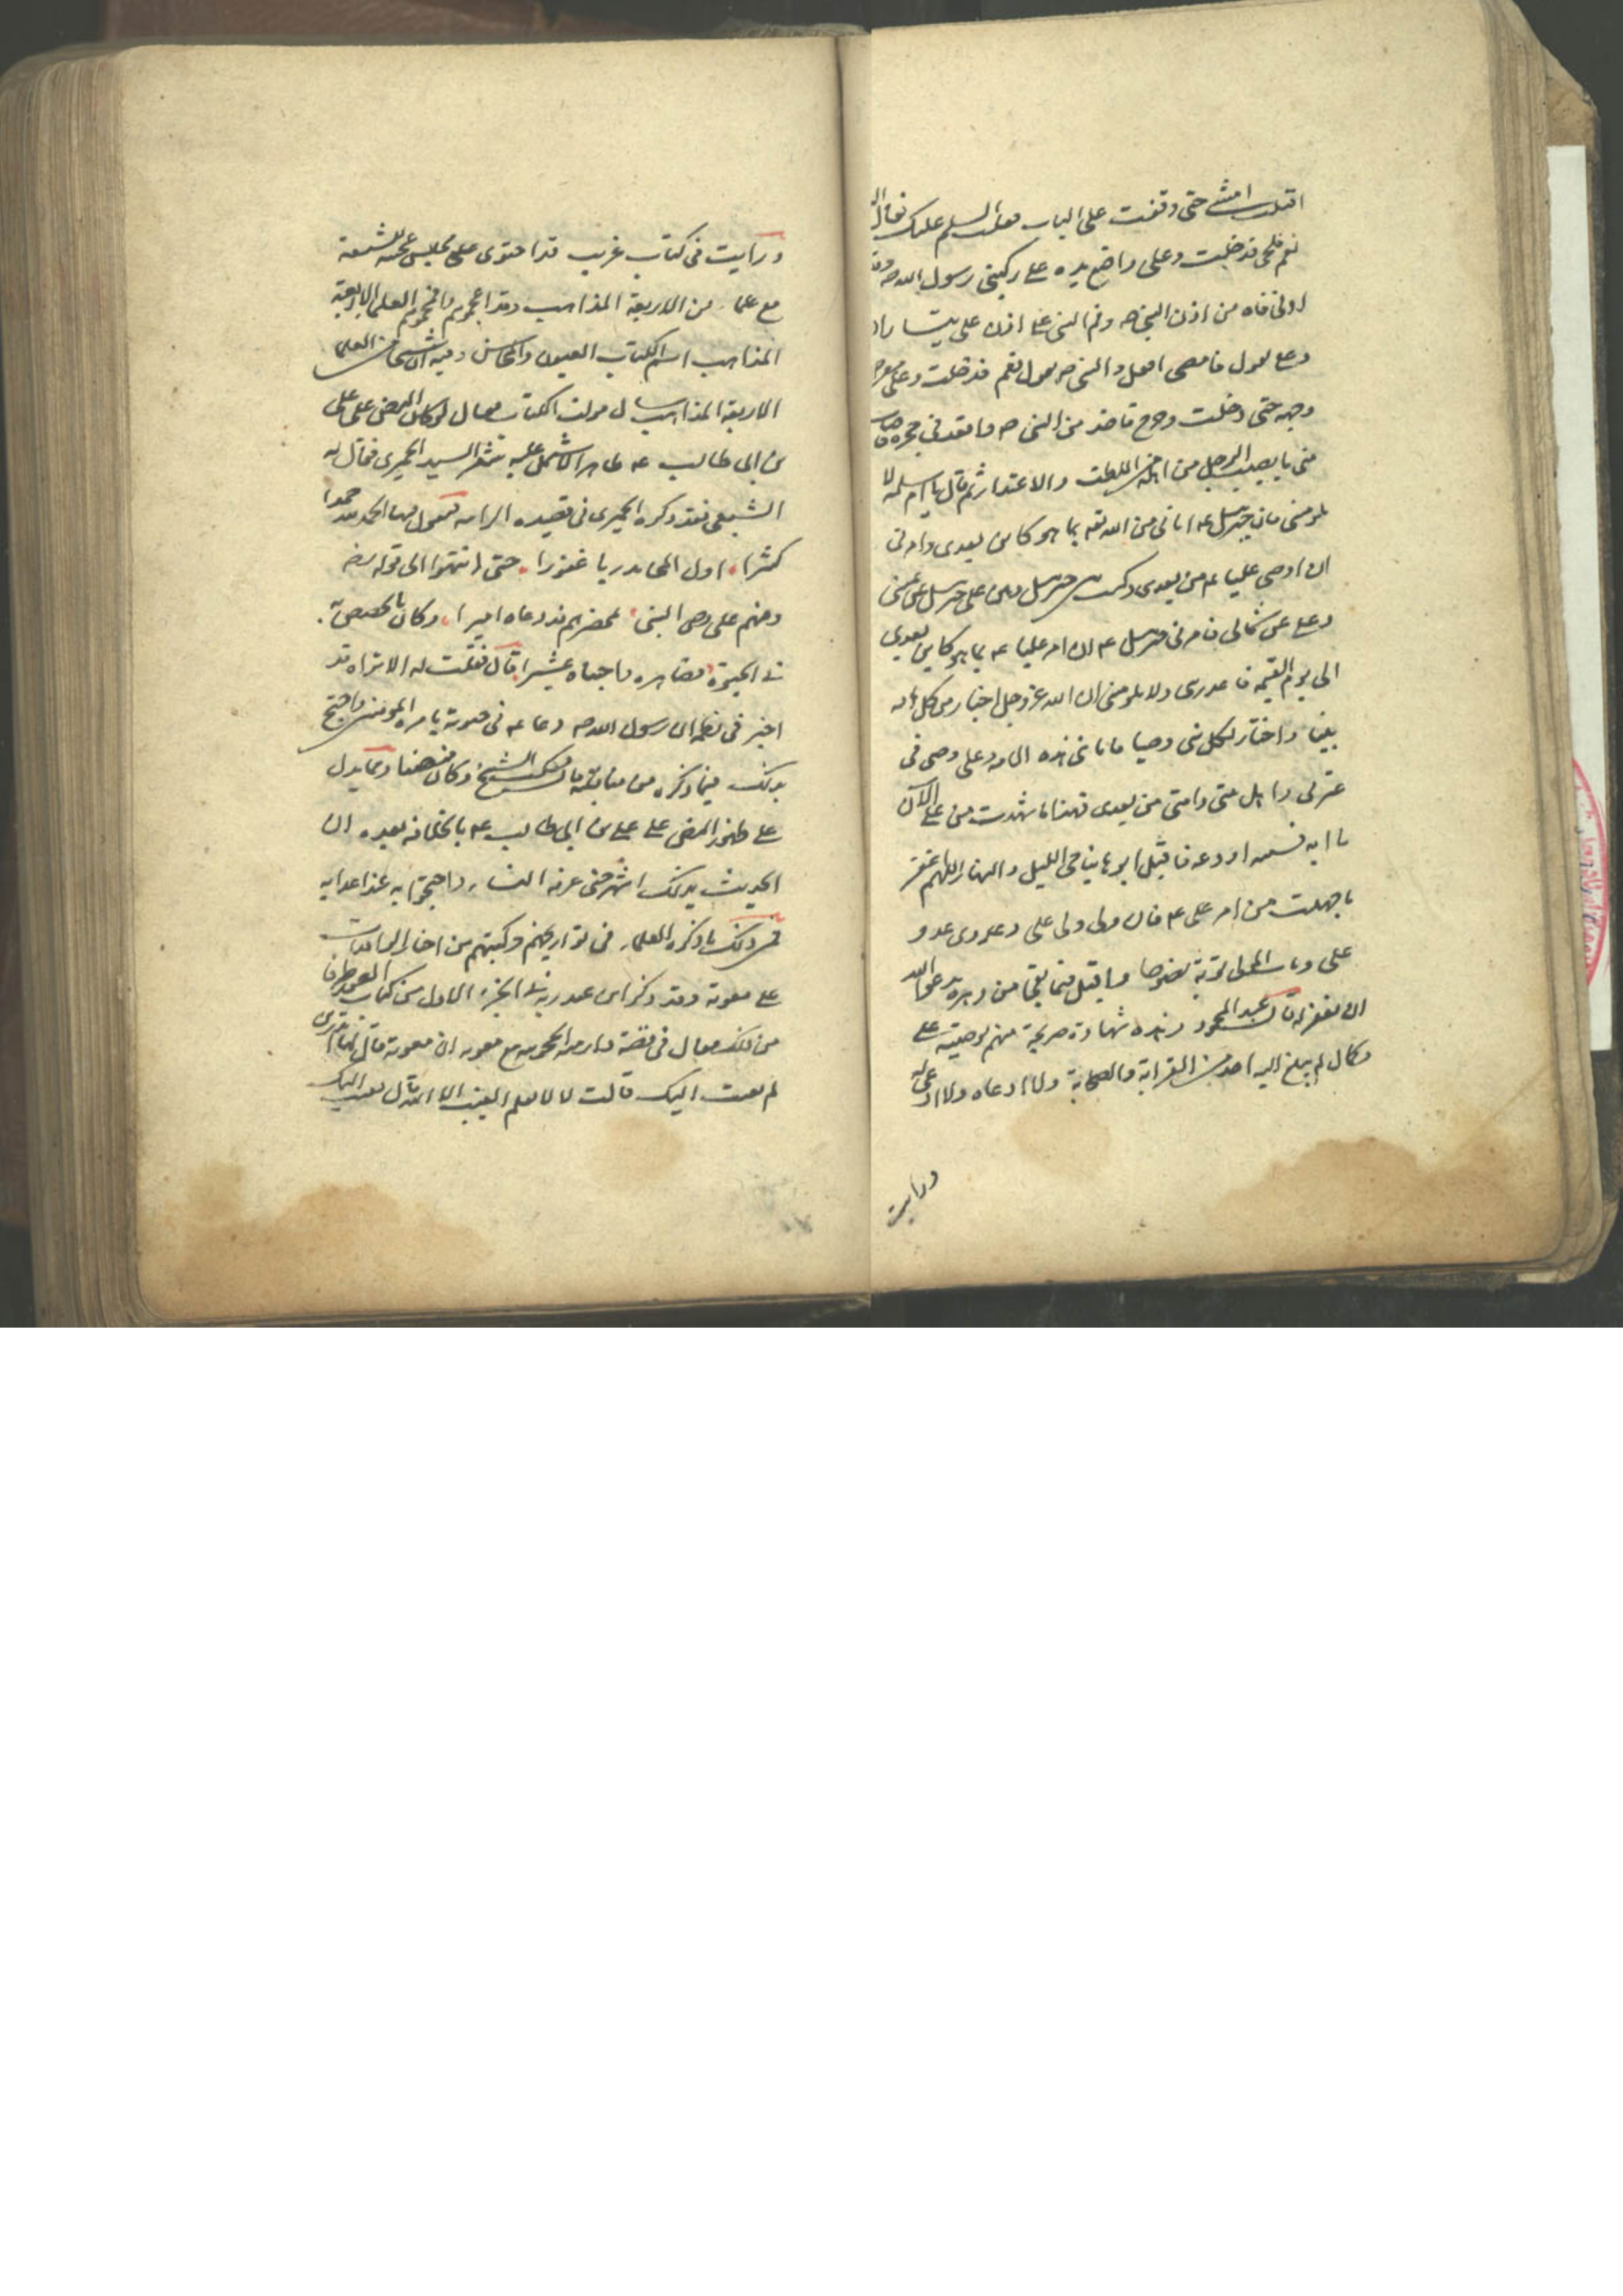 اقبلت امشى حتى وقفت على الباب فقلت السلم عليك فقال لى
نعم فلجى فدخلت وعلى واضع يده على ركبتى رسول الله صه وقد
ادنى فاه من اذن النبى صه وفم النبى على اذن على يتساران
وعلى يقول فامضى افعل والنبى صه يقول نعم فدخلت وعلى معرض
وجهه حتى دخلت وخرج فاخذ منى النبى صه واقعدنى فى حجره فاصاب
منى ما يصيب الرجل من اهله من اللطف والاعتذار ثم قال يا ام سلمه لا
تلومنى فان جبرئيل عه اتانى من الله تعه بما هو كاين بعدى وامرنى
ان اوصى عليا عه من بعدى وكنت بين جبرئيل وبين على جبرئيل عن يمينى
وعلى عن شمالى فامرنى جبرئيل عه ان امر عليا عه بما هو كاين بعدى
الى يوم القيمه فاعذرينى ولا تلومينى ان الله عز وجل اختار من كل امه
نبيا واختار لكل نبى وصيا فانا نبى هذه الامه وعلى وصى فى
عترتى واهل بيتى وامتى من بعدى فهذا ما شهدت من على الآن
يا ابه فسبه او دعه فاقبل ابوها يناجى الليل والنهار اللهم اغفر
ما جهلت من امر على عه فان ولى ولى على وعدوى عدو
على وتاب المولى توبة نصوحا واقبل فيما بقى من دهره يدعو الله
ان يغفر له قال عبد المحمود وهذه شهادة صريحة منهم بوصيته على
وكال لم يبلغ اليه احد من القرابة والصحابة ولا ادعاه ولا ادعى له
ورايت
ورايت فى كتاب غريب قد احتوى على مجلس محمد للشيعة
مع علماء من الاربعة المذاهب وقد اعجزهم وافحمهم العلما الاربعة
المذاهب اسم الكتاب العيون والمحاسن وفيه ان شيخا من العلما
الاربعة المذاهب سال مولف الكتاب فقال لو كان النص على على
بن ابى طالب عه ظاهرا لاشتمل عليه شعر السيد الحميرى فقال له
الشيعى فقد ذكره الحميرى فى قصيده الرايه يقول فيها الحمد لله حمدا
كثيرا، اول المحامد ربا غفورا، حتى انتهوا الى قوله رضه
وفيهم على وصى النبى، بمحضرهم قد دعاه اميرا، وكان الخصيص به
فى الحيوة، فصاهره واجتباه عشيرا، قال فقلت له الا تراه قد
اخبر فى نظمه ان رسول الله صه دعا عه فى حيوته بامره المومنين واحتج
بذلك فيما ذكره من مناقبه قال فسكت الشيخ وكان منصفا ومما يدل
على ظهور النص على على بن ابى طالب عه بالخلافه بعده ان
الحديث بذلك اشتهر حتى عرفه النساء واحتجوا به عند اعدايه
فمن ذلك ما ذكره العلماء فى تواريخهم وكتبهم من اخبار الوافدات
على معويه وقد ذكر ابن عبد ربه فى الجزء الاول من كتاب العقد طرفا
من ذلك فقال فى قصة دارميه الحجونيه مع معويه ان معوية قال لها اتدرى
لم بعثت اليك قالت لا لا يعلم الغيب الا الله قال بعثت اليك